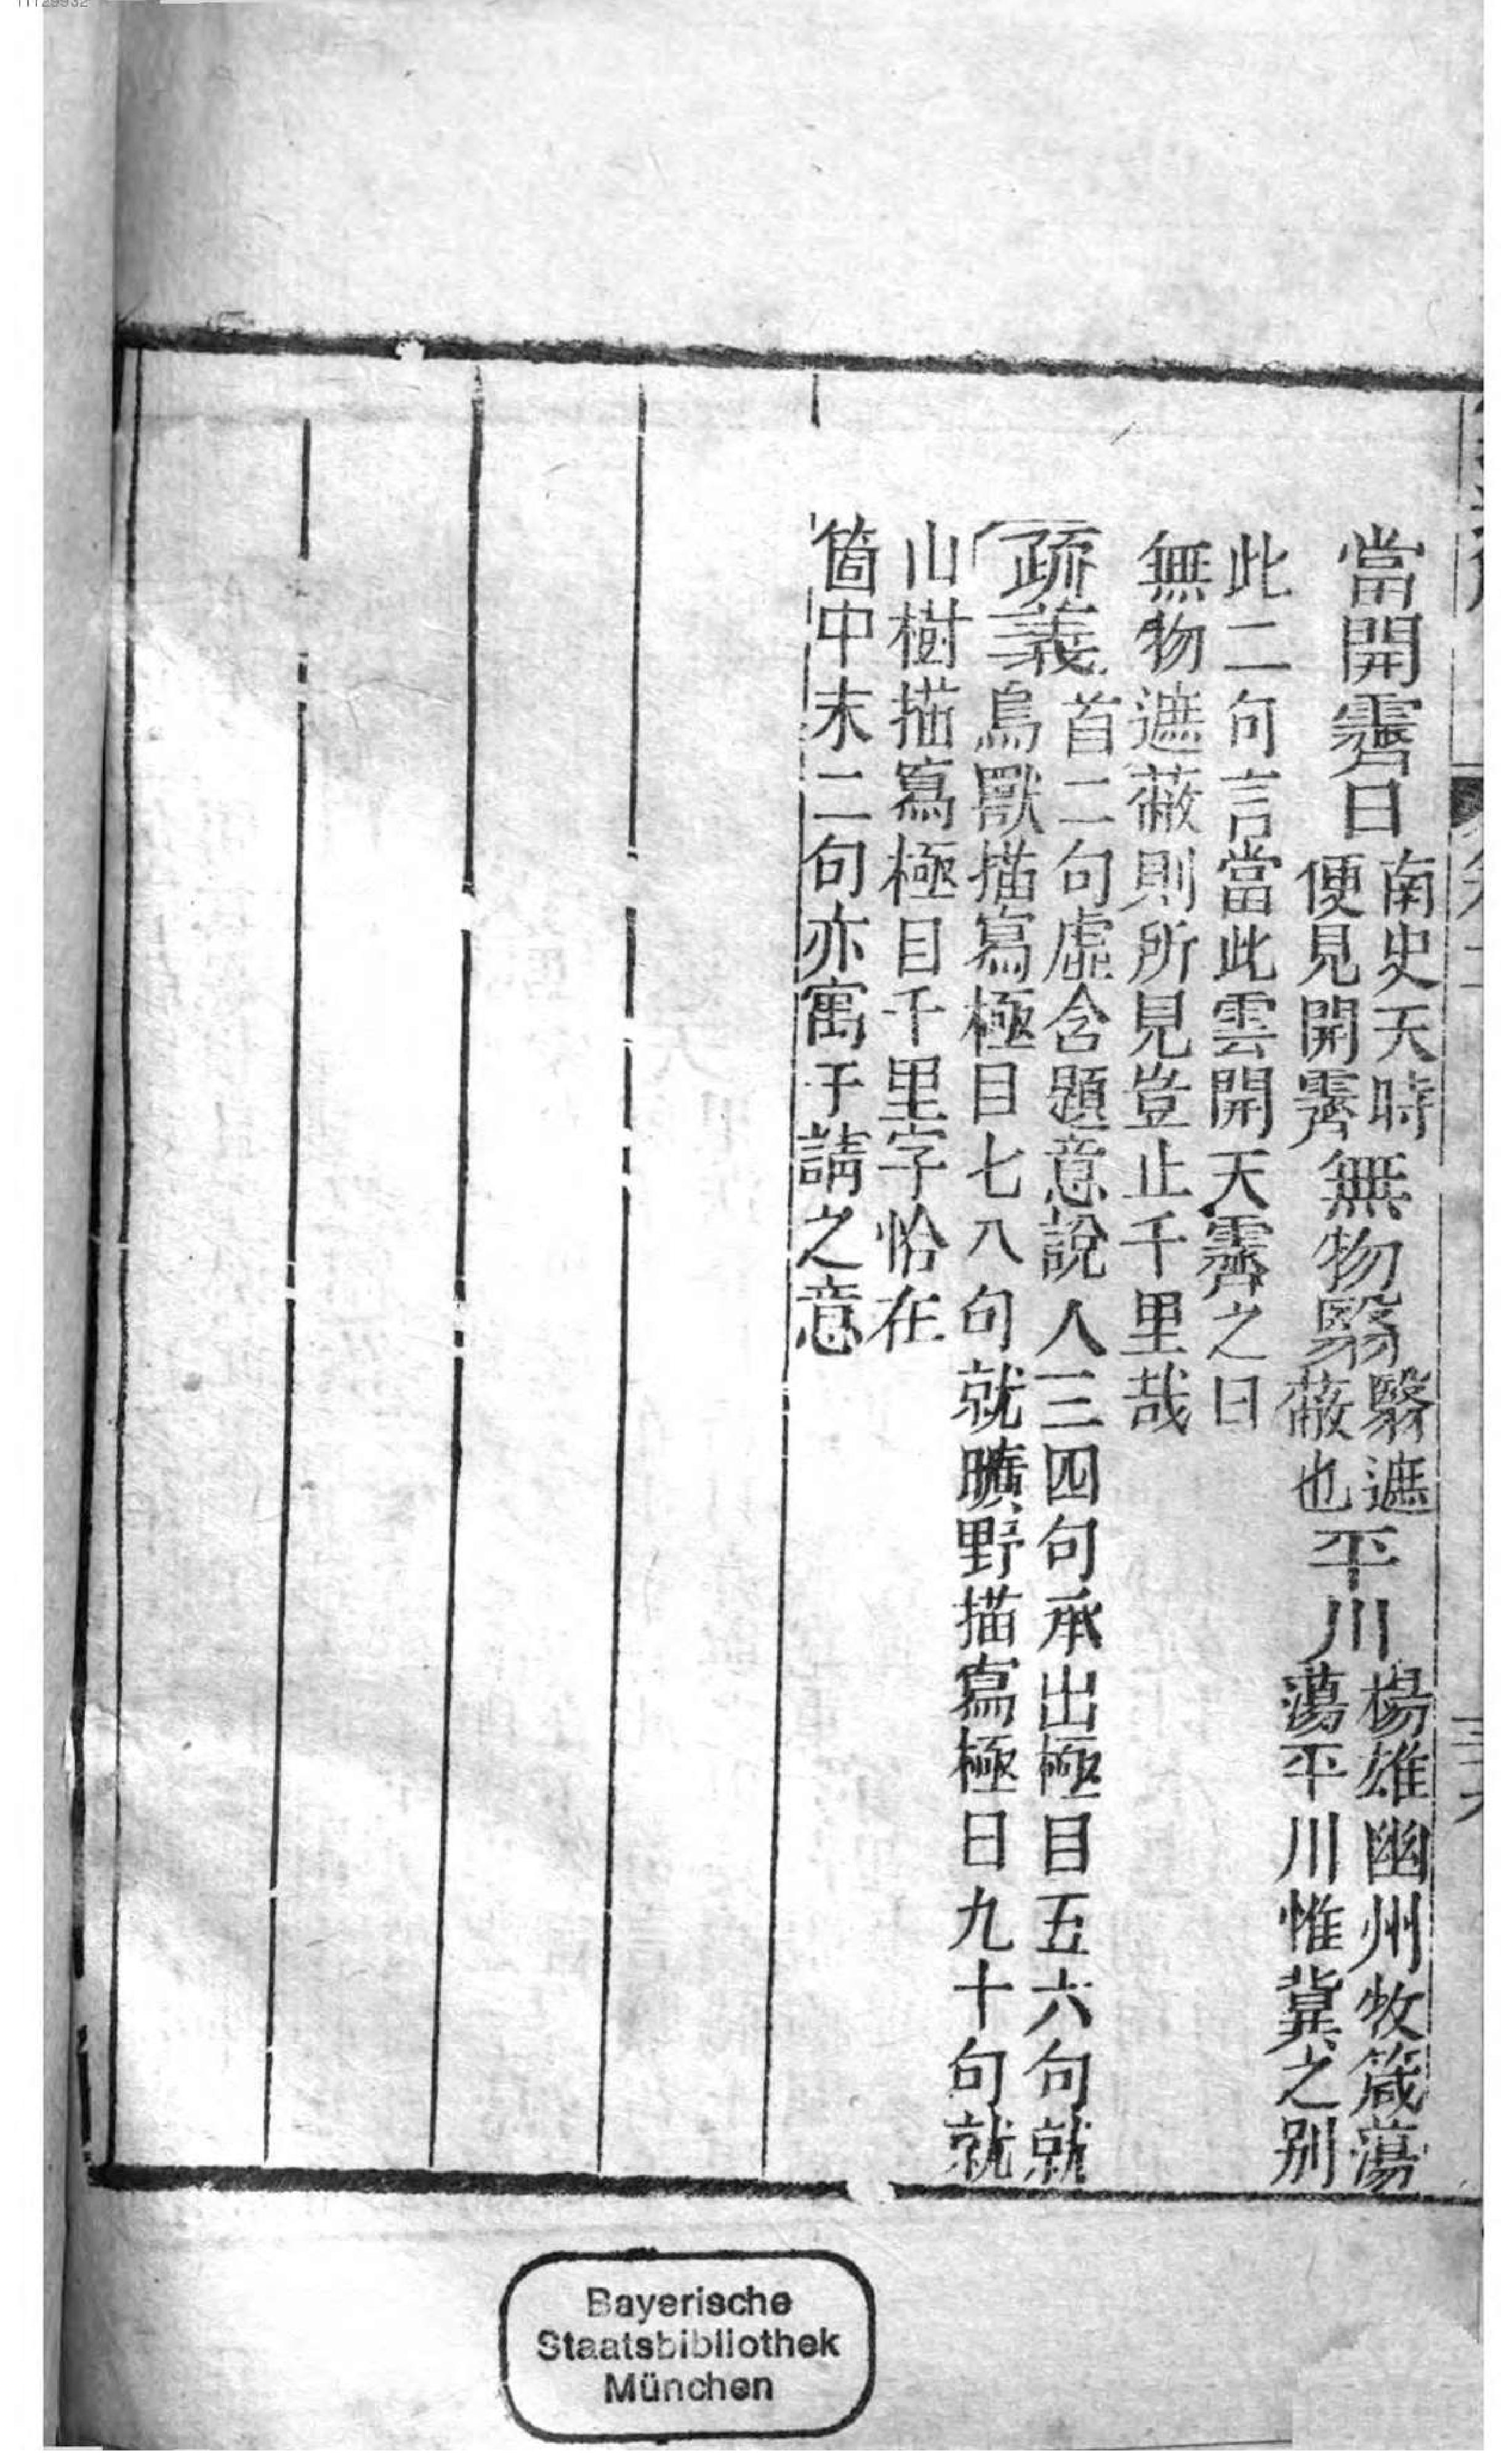 當開霽日南史天時便見開霽無物翳翳遮蔽也平川楊雄幽州牧箴蕩蕩平川惟冀之別
此二句言當此雲開天霽之日
無物遮蔽則所見豈止千里哉
疏義首二句虛含題意說人三四句承出極目五六句就
鳥獸描寫極目七八句就曠野描寫極日九十句就
山樹描寫極目千里字恰在
箇中末二句亦寓于請之意
Bayerische
Staatsbibliothek
München
11129932